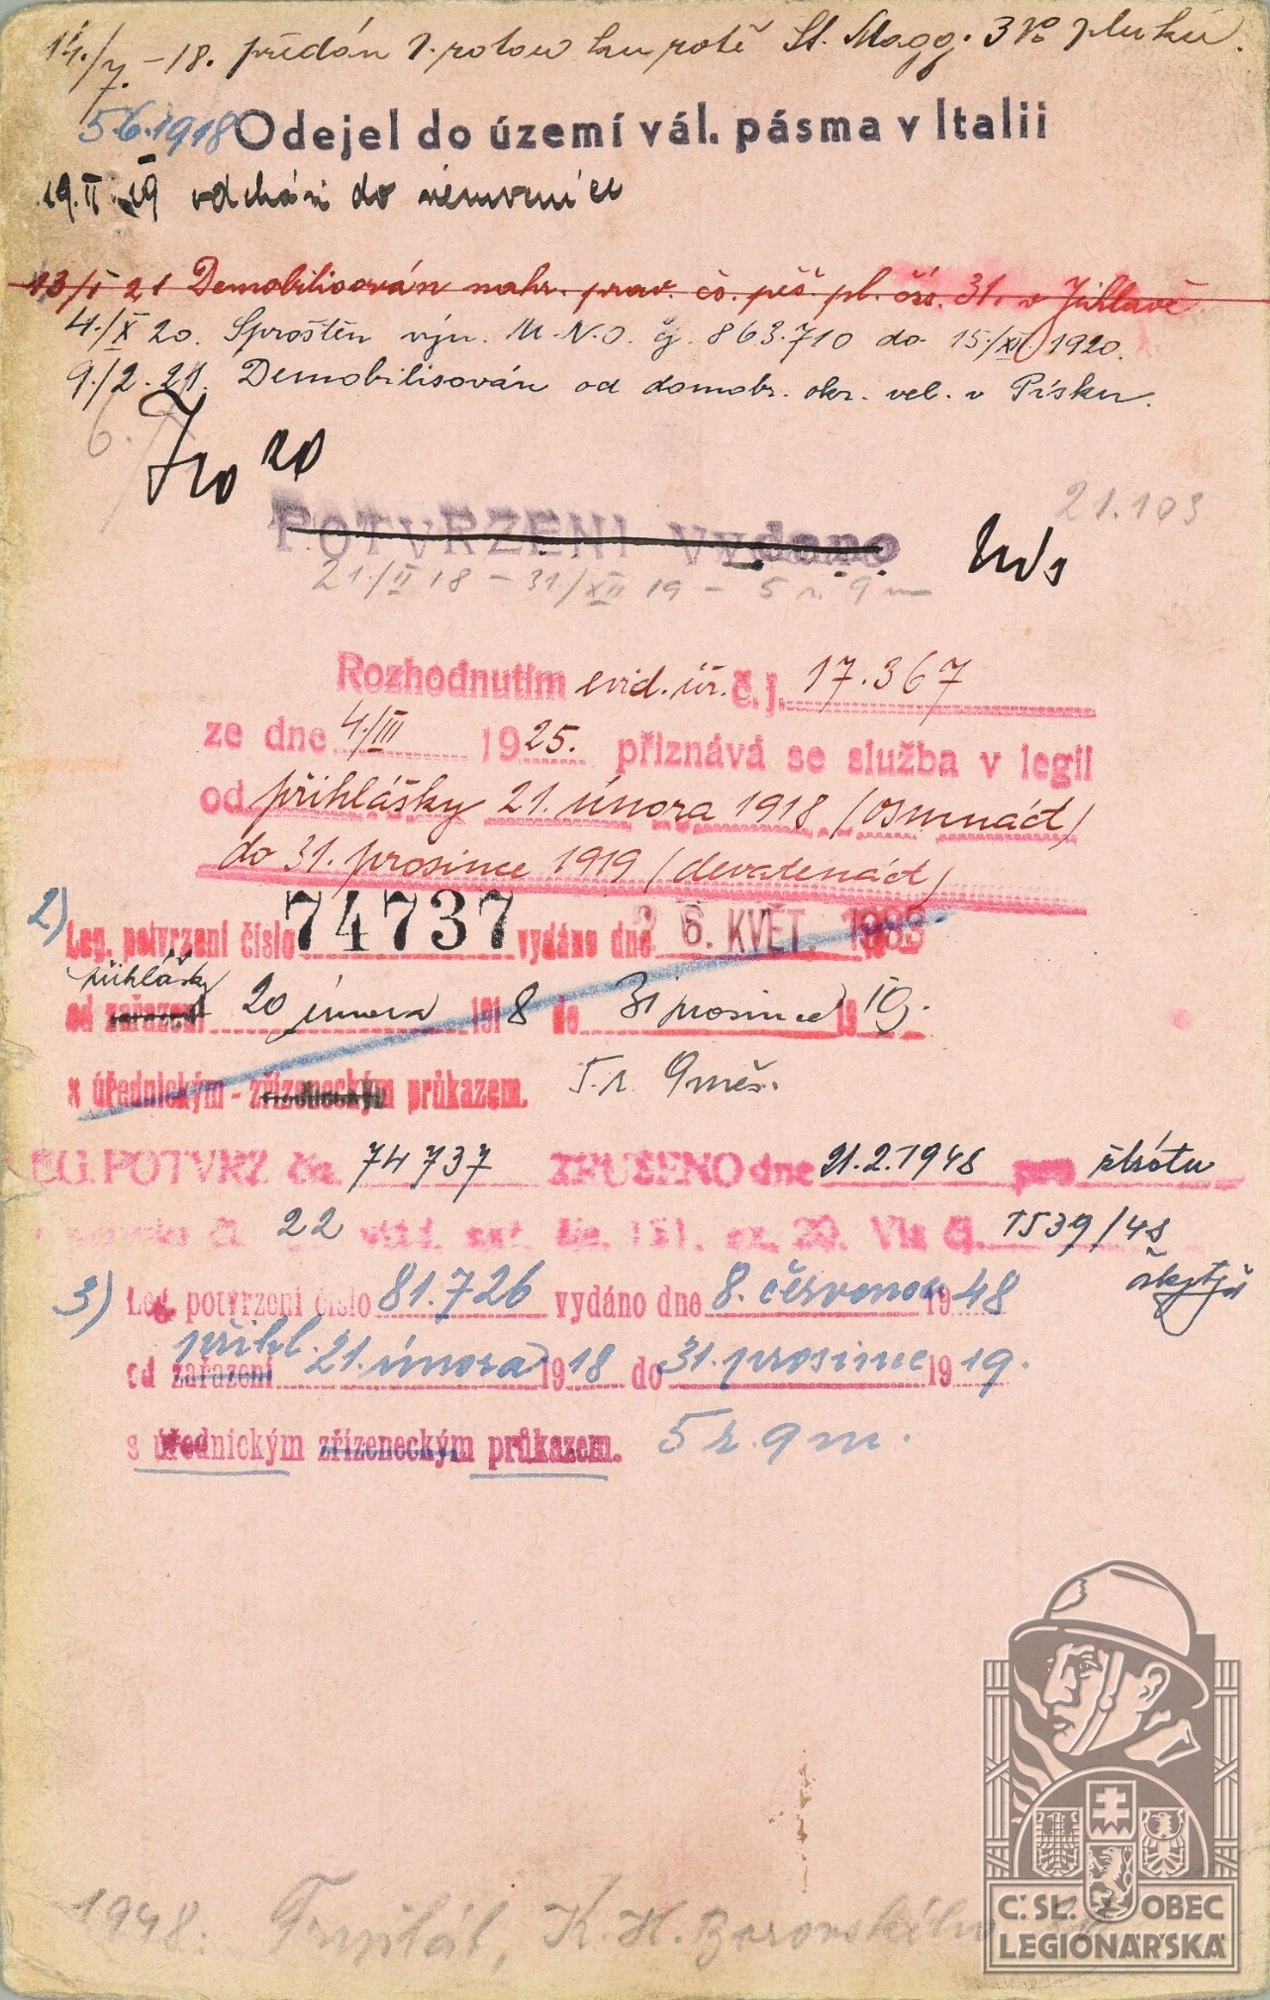 14./7. - 18. předán 1. rotou ku rotě St. Magg. 3ho pluku.
5.6.1918 Odejel do území vál. pásma v Italii
19.II 19 odchází do nemocnice
13/I 21 Demobilisován nahr. prap. čs. pěš. pl. čís. 31. v Jihlavě
4./X 20. Sproštěn výn. M.N.O. čj. 863.710 do 15./XII. 1920.
9./2. 21. Demobilisován od domobr. okr. vel. v Písku.
6.
20
21.103
POTVRZENI Vydano
21./II 18 - 31/XII 19 - 5 r. 9 m
Rozhodnutím evid. úř. č. j. 17.367
ze dne 4./III 1925. přiznává se služba v legii
od přihlášky 21. února 1918 (osmnáct)
do 31. prosince 1919 (devatenáct)
2) Leg. potvrzení číslo 74737 vydáno dne 26. KVĚT. 1933
přihlášky
od zařazení 20 února 1918 do 31 prosince 1919.
s úřednickým - zřízeneckým průkazem. 5 r. 9 měs.
EG. POTVRZ čís. 74737 ZRUŠENO dne 21.2.1948 pro ztrátu
čl. 22 1539/48
3) Leg. potvrzení číslo 81.726 vydáno dne 8. června 1948
přihl.
od zařazení 21. února 1918 do 31. prosince 1919.
s úřednickým zřízeneckým průkazem. 5 r. 9 m.
1948: K. H. Borovského
Č. SL. OBEC
LEGIONÁŘSKÁ